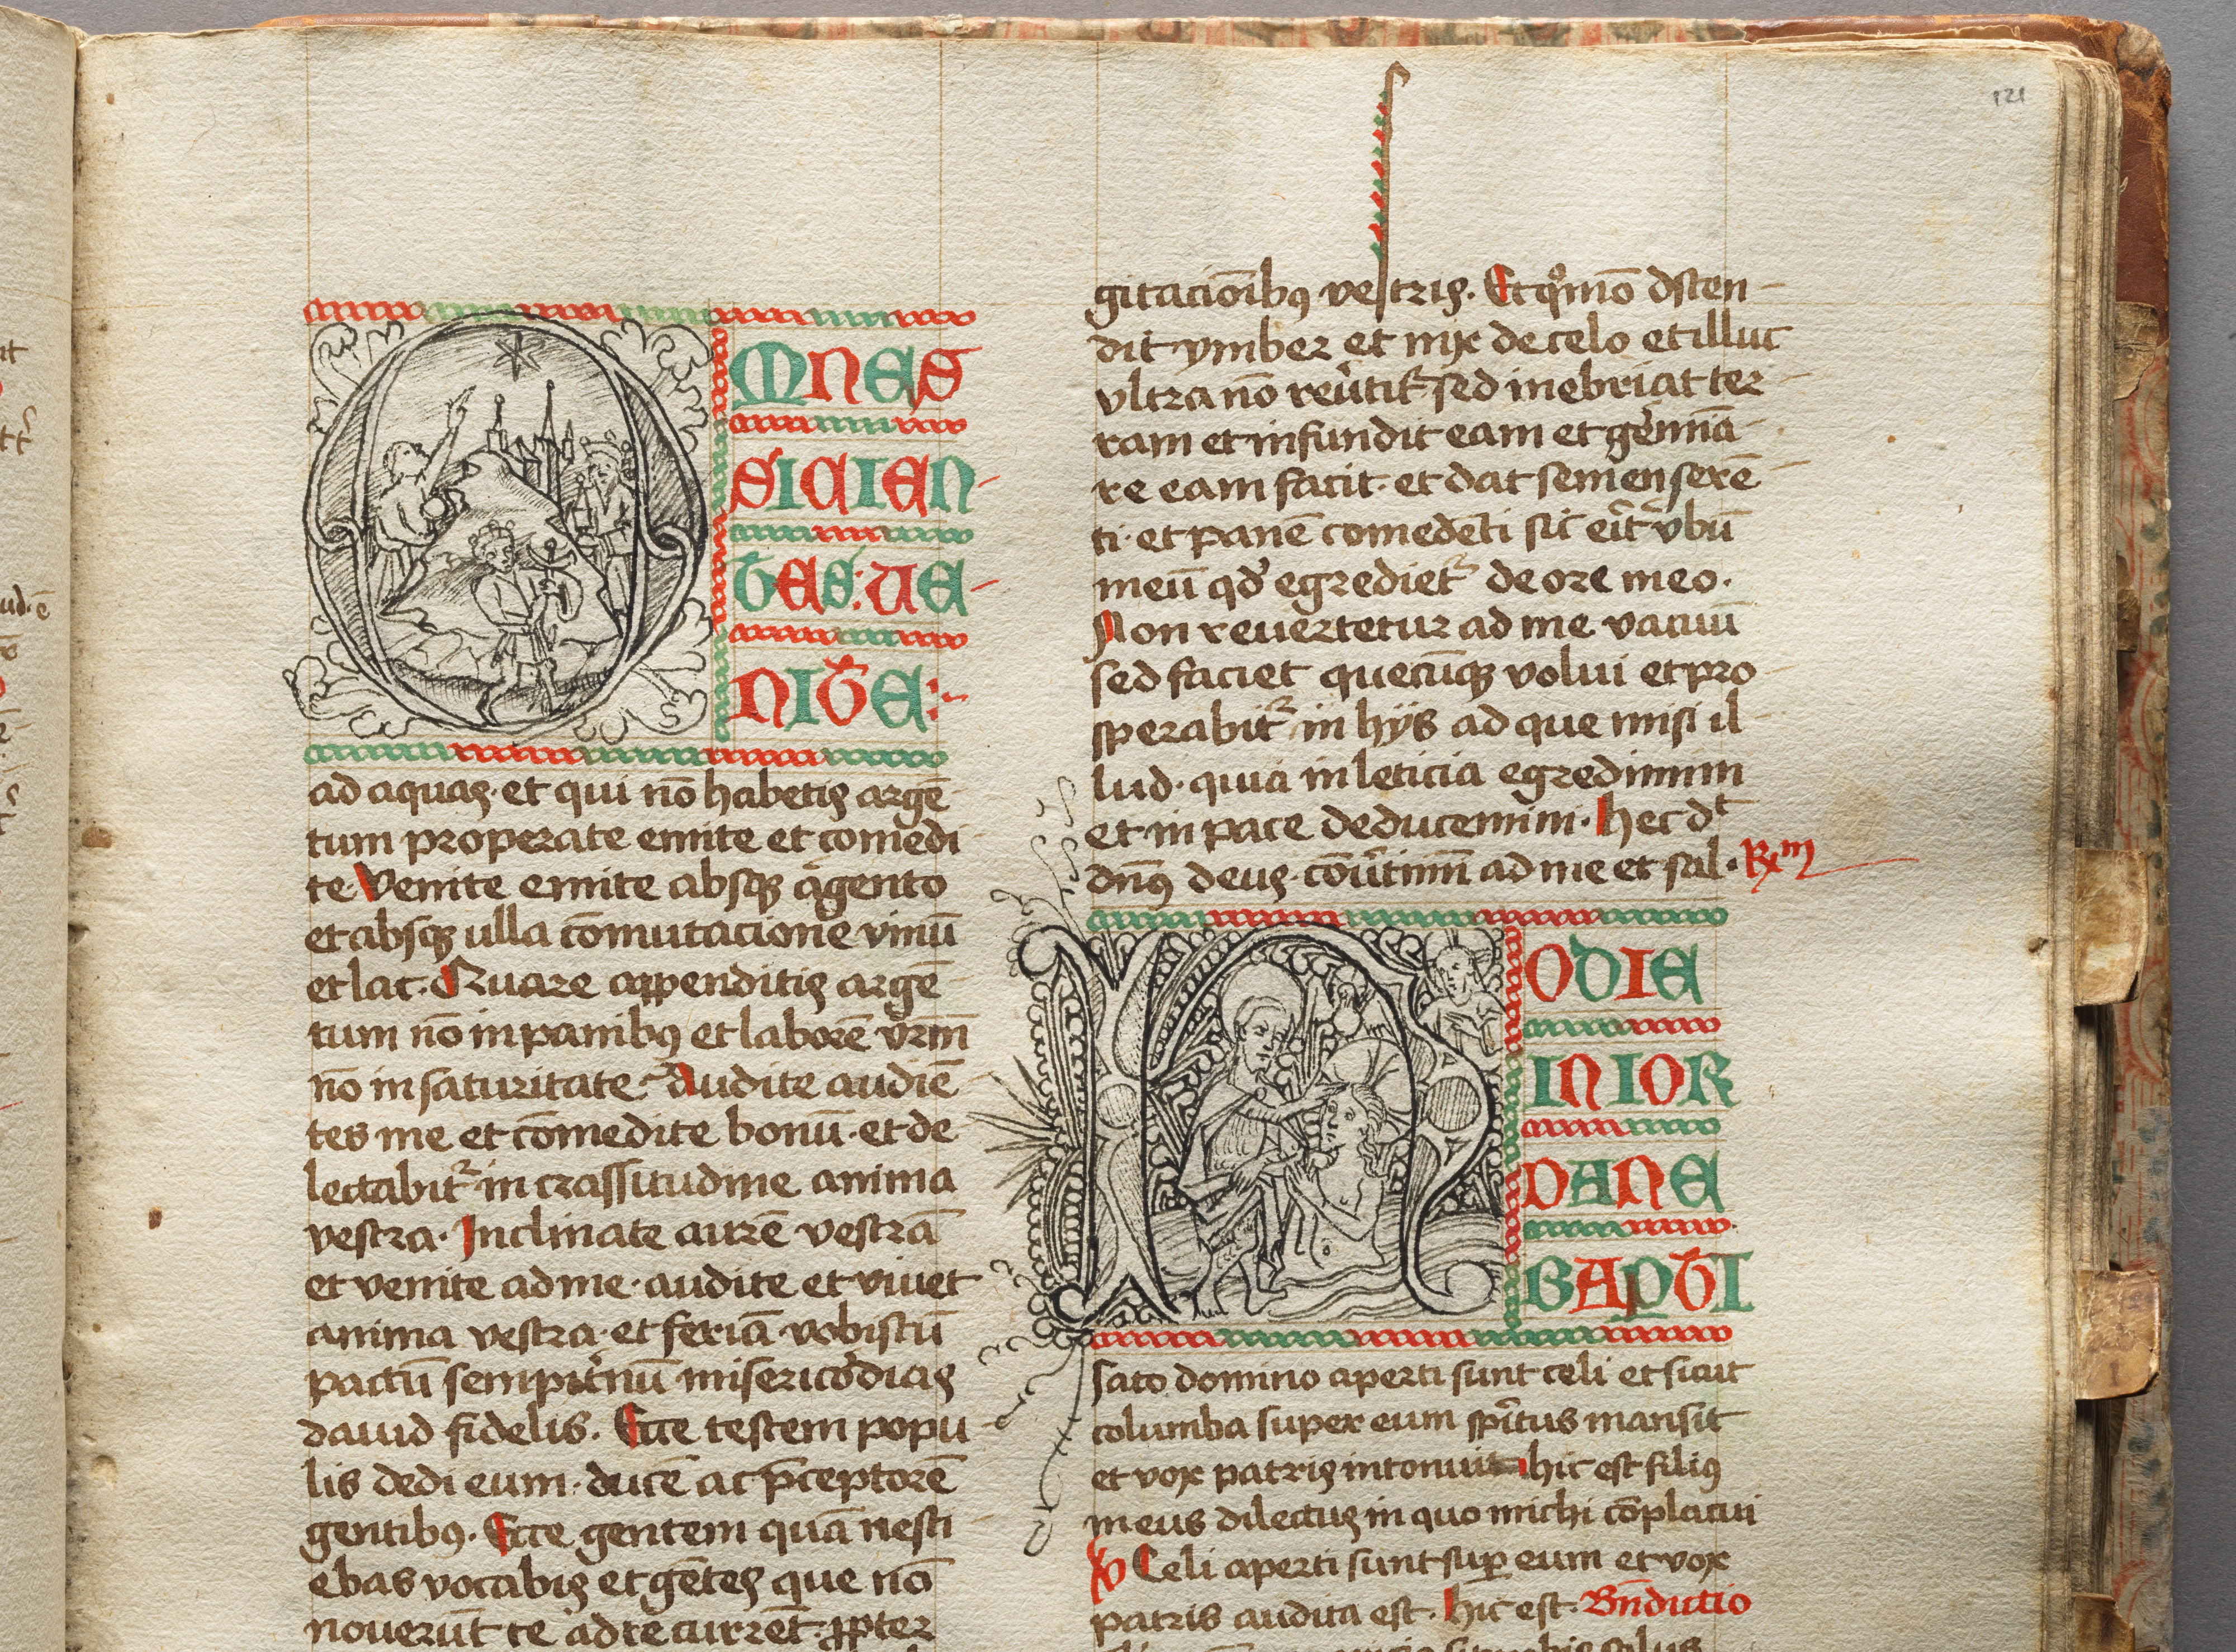 121
OMNES
SICIEN
TES: UE
NITE:
ad aquas· et qui nō habetis argē
tum properate emite et comedi
te· Venite emite absqꝫ argento
et absqꝫ ulla cōmutacione vinū
et lac· Quare appenditis argē
tum nō in panibꝰ et laborē vr̄m
nō in saturitate· Audite audiē
tes me et cōmedite bonū· et de
lectabit᷑ in crassitudine anima
vestra· Inclinate aurē vestrā
et venite ad me· audite et viuet
anima vestra· et feriā vobiscū
pactū sempit̾nū misericordias
dauid fidelis. Ecce testem popu
lis dedi eum· ducē ac p̄ceptorē
gentibꝰ. Ecce gentem quā nesci
ebas vocabis et gētes que nō
nouerūt te ad te current· ꝓpter
gitacionibꝰ vestris. Et qͦmo dscen
dit ymber et nix de celo et illuc
vltra nō reu̾tit᷑ sed inebriat ter
ram et infundit eam et germīa
re eam facit· et dat semen serē
ti· et panē comedēti sic erit v̾bū
meū qd̾ egrediet᷑ de ore meo·
Non reuertetur ad me vacuū
sed faciet quecūqꝫ volui et pro
sperabit᷑ in hijs ad que misi il
lud· quia in leticia egredimini
et in pace deducemini· hec dt
dn̄s deus· cōu̾timī ad me et sal· Rm
HODIE
IN IOR
DANE
BAPTI
sato domino aperti sunt celi et sicut
columba super eum sp̄itus mansit
et vox patris intonuit hic est filiꝰ
meus dilectus in quo michi cōplacui
V Celi aperti sunt suꝑ eum et vox
patris audita est· hic est· Bn̄dictio